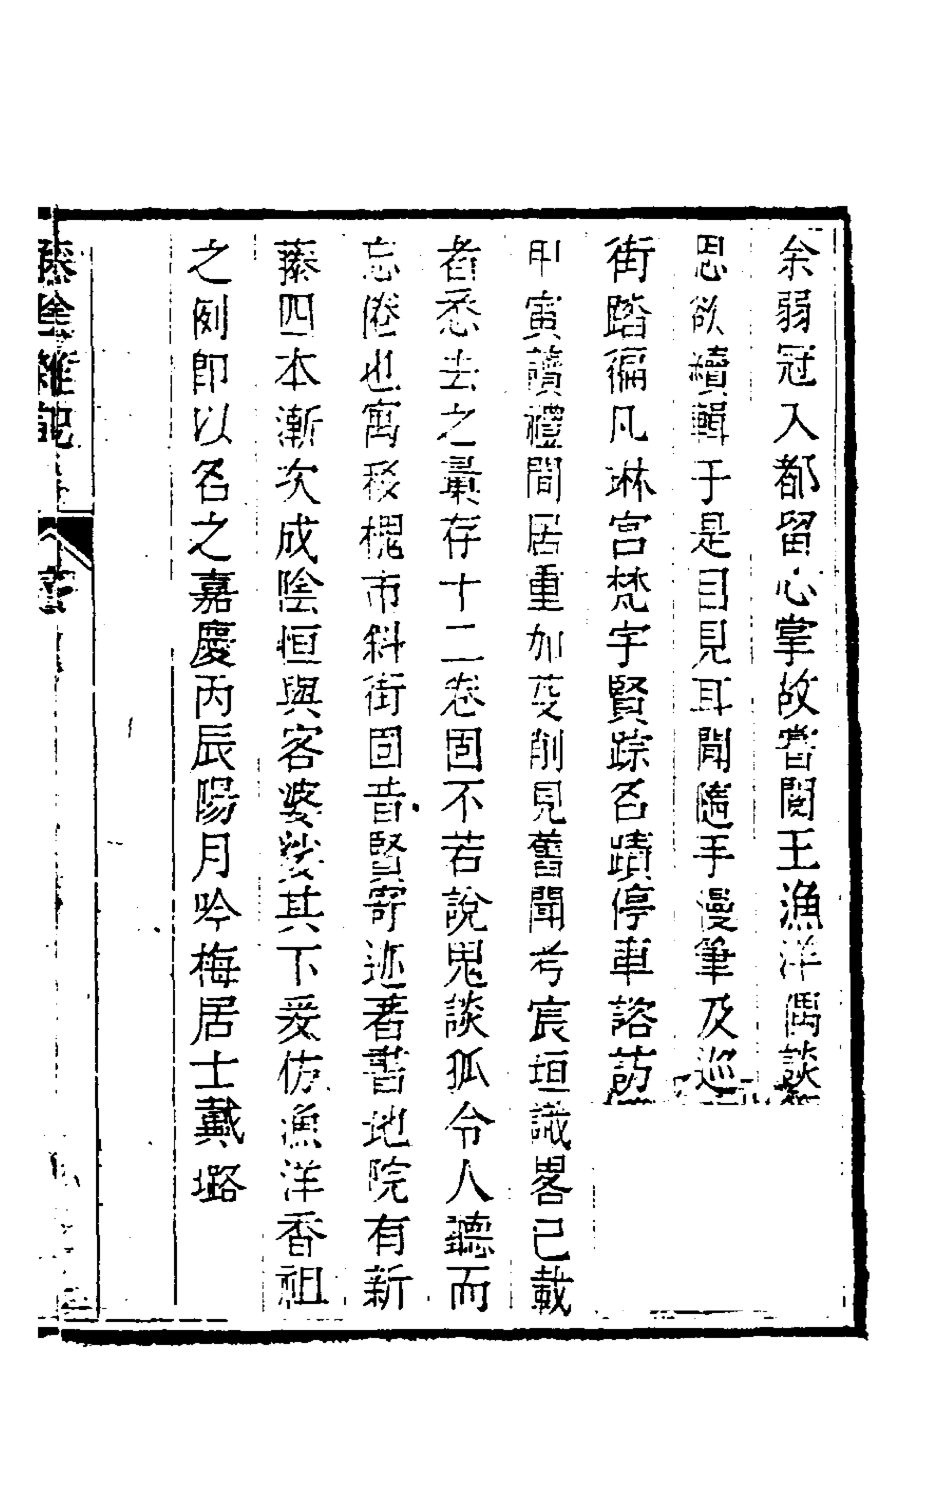 余弱冠入都留心掌故嘗閱王漁洋偶談
思欲續輯于是目見耳聞隨手漫筆及巡
街踏徧凡琳宮梵宇賢踪名蹟停車諮訪
甲寅讀禮間居重加芟削見舊聞考宸垣識畧已載
者悉去之彙存十二卷固不若說鬼談狐令人聽而
忘倦也寓移槐市斜街固昔賢寄迹著書地院有新
藤四本漸次成陰恒與客婆娑其下爰仿漁洋香祖
之例即以名之嘉慶丙辰陽月吟梅居士戴璐
藤陰雜記